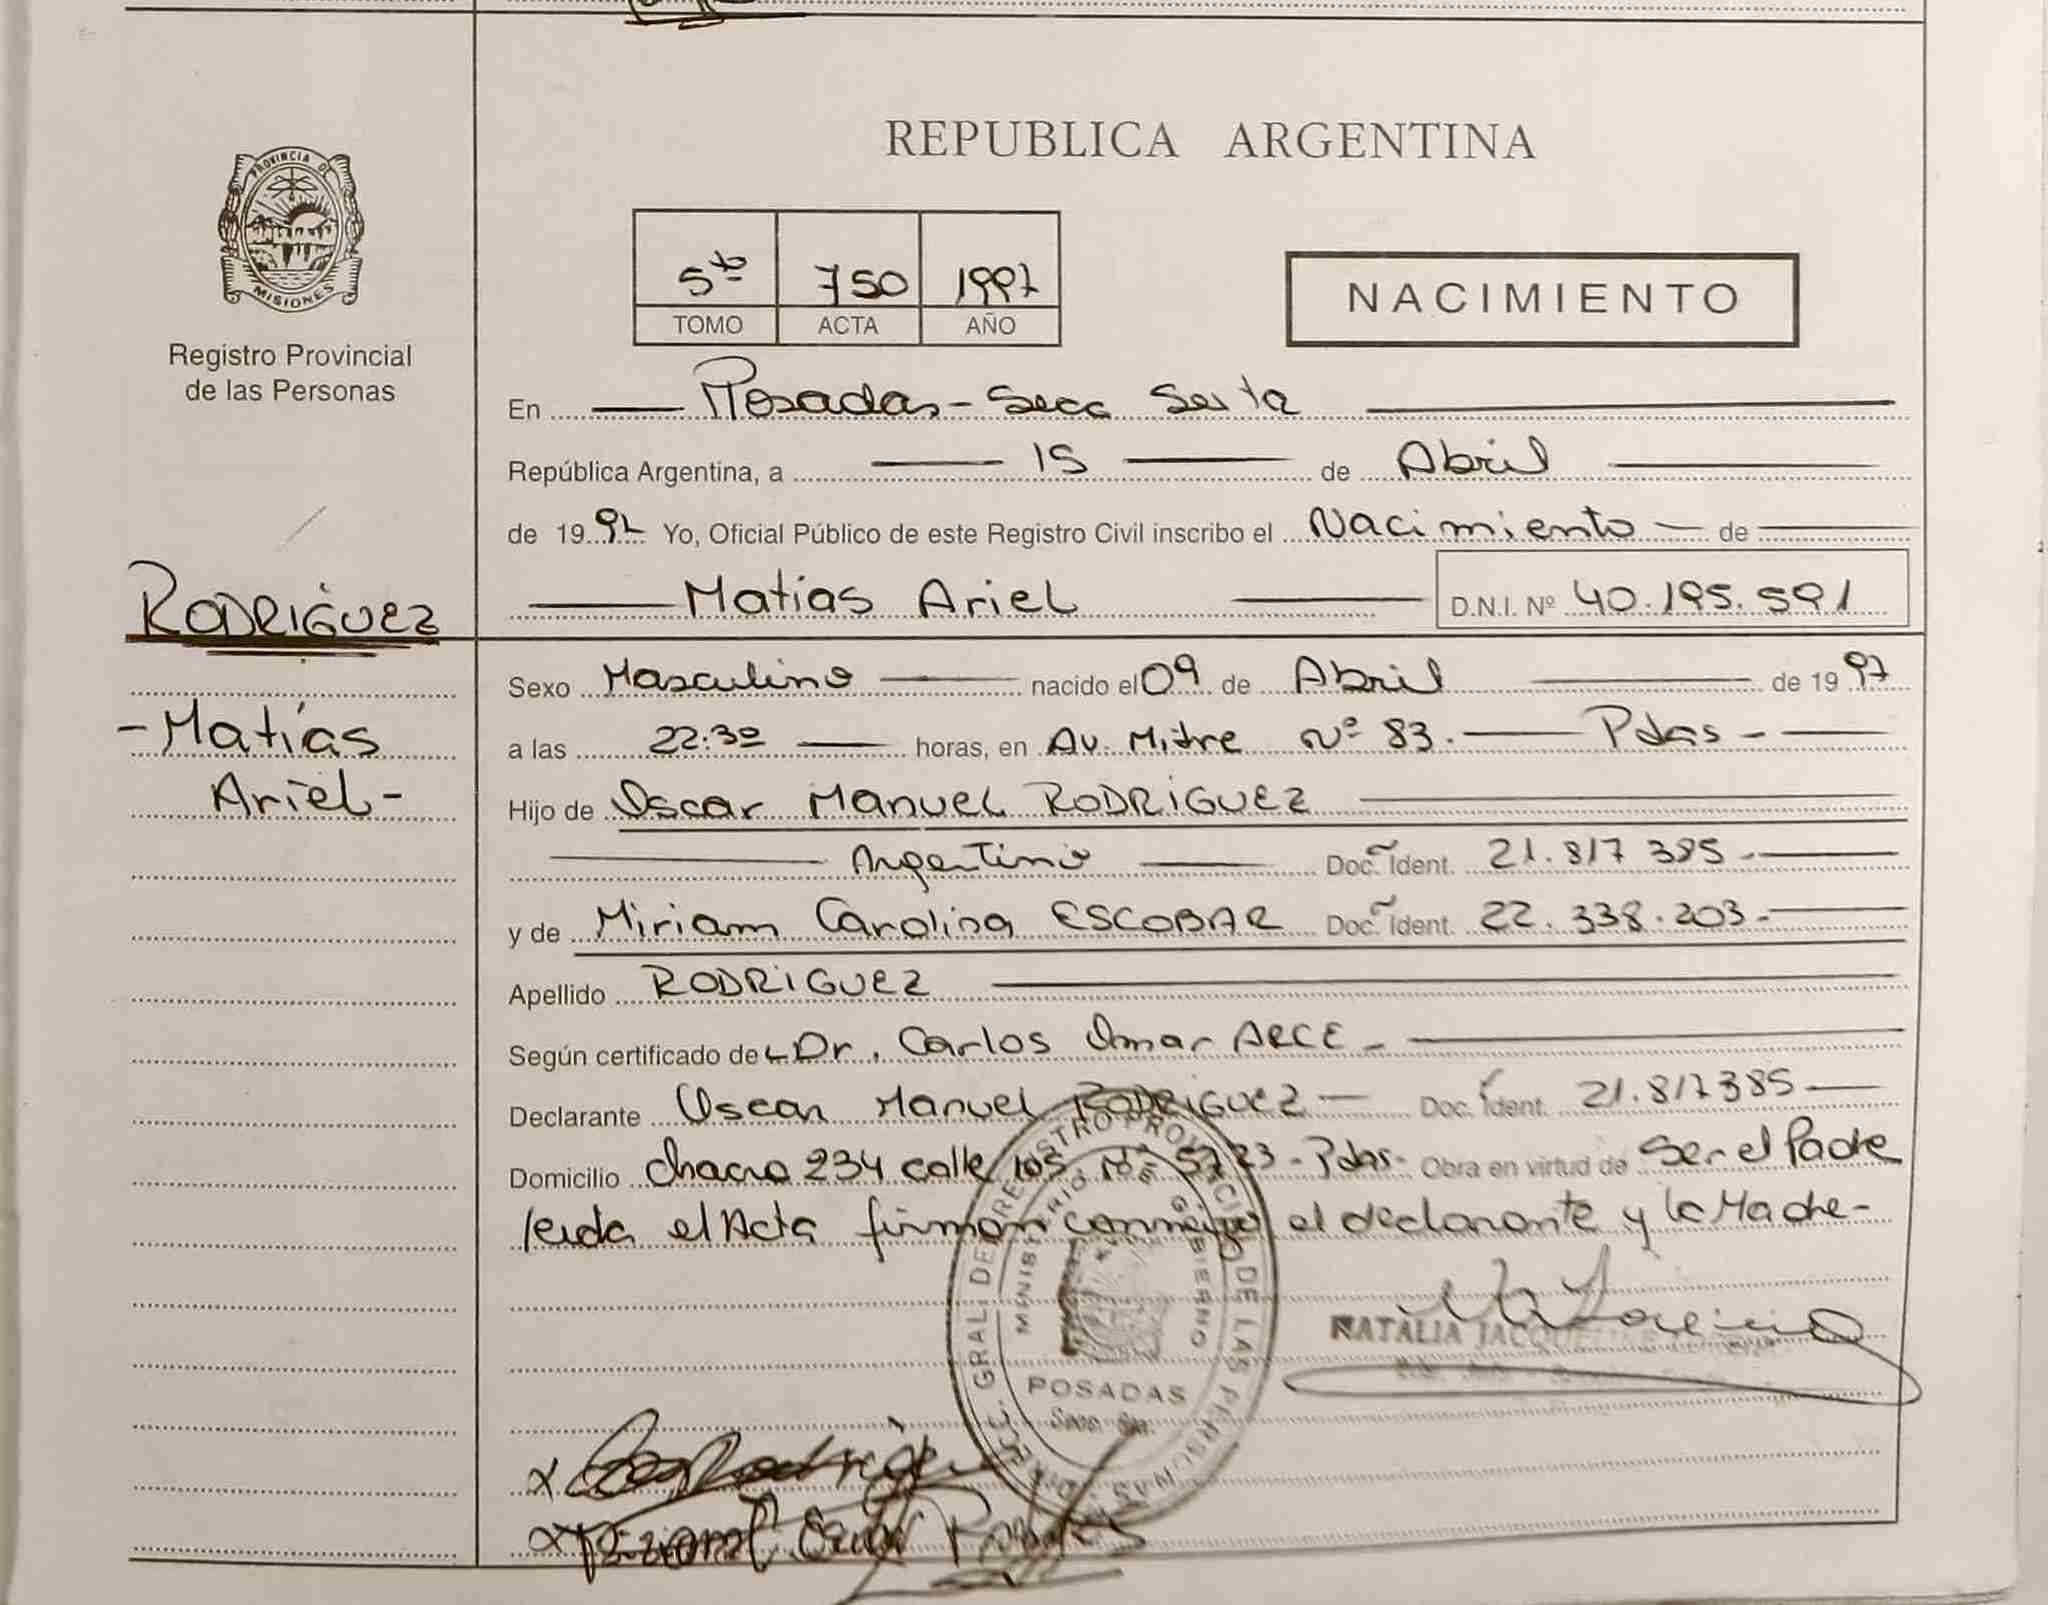 PROVINCIA DE
MISIONES
Registro Provincial
de las Personas
RODRIGUEZ
- Matías
Ariel -
REPUBLICA ARGENTINA
5to 750 1997
TOMO ACTA AÑO
NACIMIENTO
En Posadas - Secc Sexta
República Argentina, a 15 de Abril
de 1997 Yo, Oficial Público de este Registro Civil inscribo el Nacimiento de
Matías Ariel D.N.I. Nº 40.195.591
Sexo Masculino nacido el 09 de Abril de 1997
a las 22:30 horas, en Av. Mitre Nº 83. Pdas -
Hijo de Oscar Manuel RODRIGUEZ
Argentino Doc. Ident. 21.817 385 -
y de Miriam Carolina ESCOBAR Doc. Ident. 22.338.203 -
Apellido RODRIGUEZ
Según certificado de Dr. Carlos Omar ARCE -
Declarante Oscar Manuel RODRIGUEZ Doc. Ident. 21.817385
Domicilio Chacra 234 calle 105. Nº 5723 - Pdas - Obra en virtud de Ser el Padre
leida el Acta firman conmigo el declarante y la Madre -
DIRECC. GRAL. DE REGISTRO PROVINCIAL DE LAS PERSONAS
MINISTERIO DE GOBIERNO
POSADAS
Secc.
NATALIA JACQUELINE